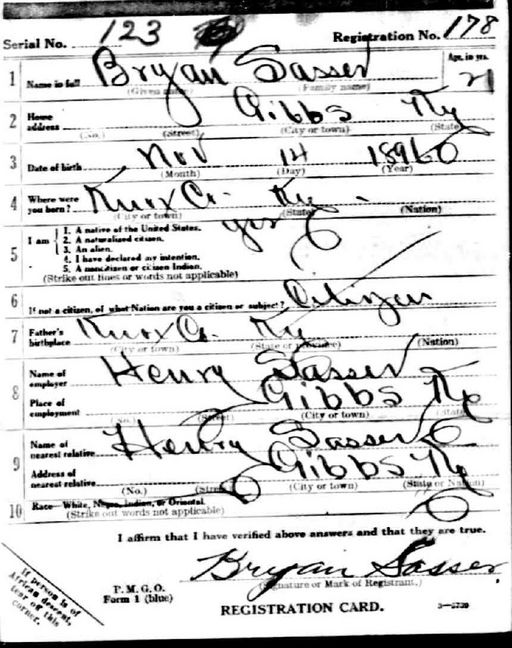 Serial No. 123 Registration No. 178
1 Name in full Bryan Sasser Age, in yrs. 21
(Given name) (Family name)
2 Home address Gibbs Ky
(No.) (Street) (City or town) (State)
3 Date of birth Nov 14 1896
(Month) (Day) (Year)
4 Where were you born? Knox Co. Ky
(City or town) (State) (Nation)
5 I am
1. A native of the United States. yes
2. A naturalized citizen.
3. An alien.
4. I have declared my intention.
5. A noncitizen or citizen Indian.
(Strike out lines or words not applicable)
6 If not a citizen, of what Nation are you a citizen or subject? Citizen
7 Father's birthplace Knox Co. Ky
(City or town) (State or province) (Nation)
8 Name of employer Henry Sasser
Place of employment Gibbs Ky
(No.) (Street) (City or town) (State)
9 Name of nearest relative Henry Sasser
Address of nearest relative Gibbs Ky
(No.) (Street) (City or town) (State or Nation)
10 Race—White, Negro, Indian, or Oriental.
(Strike out words not applicable)
I affirm that I have verified above answers and that they are true.
Bryan Sasser
(Signature or Mark of Registrant.)
P.M.G.O.
Form 1 (blue)
REGISTRATION CARD.
If person is of
African descent,
tear off this
corner.